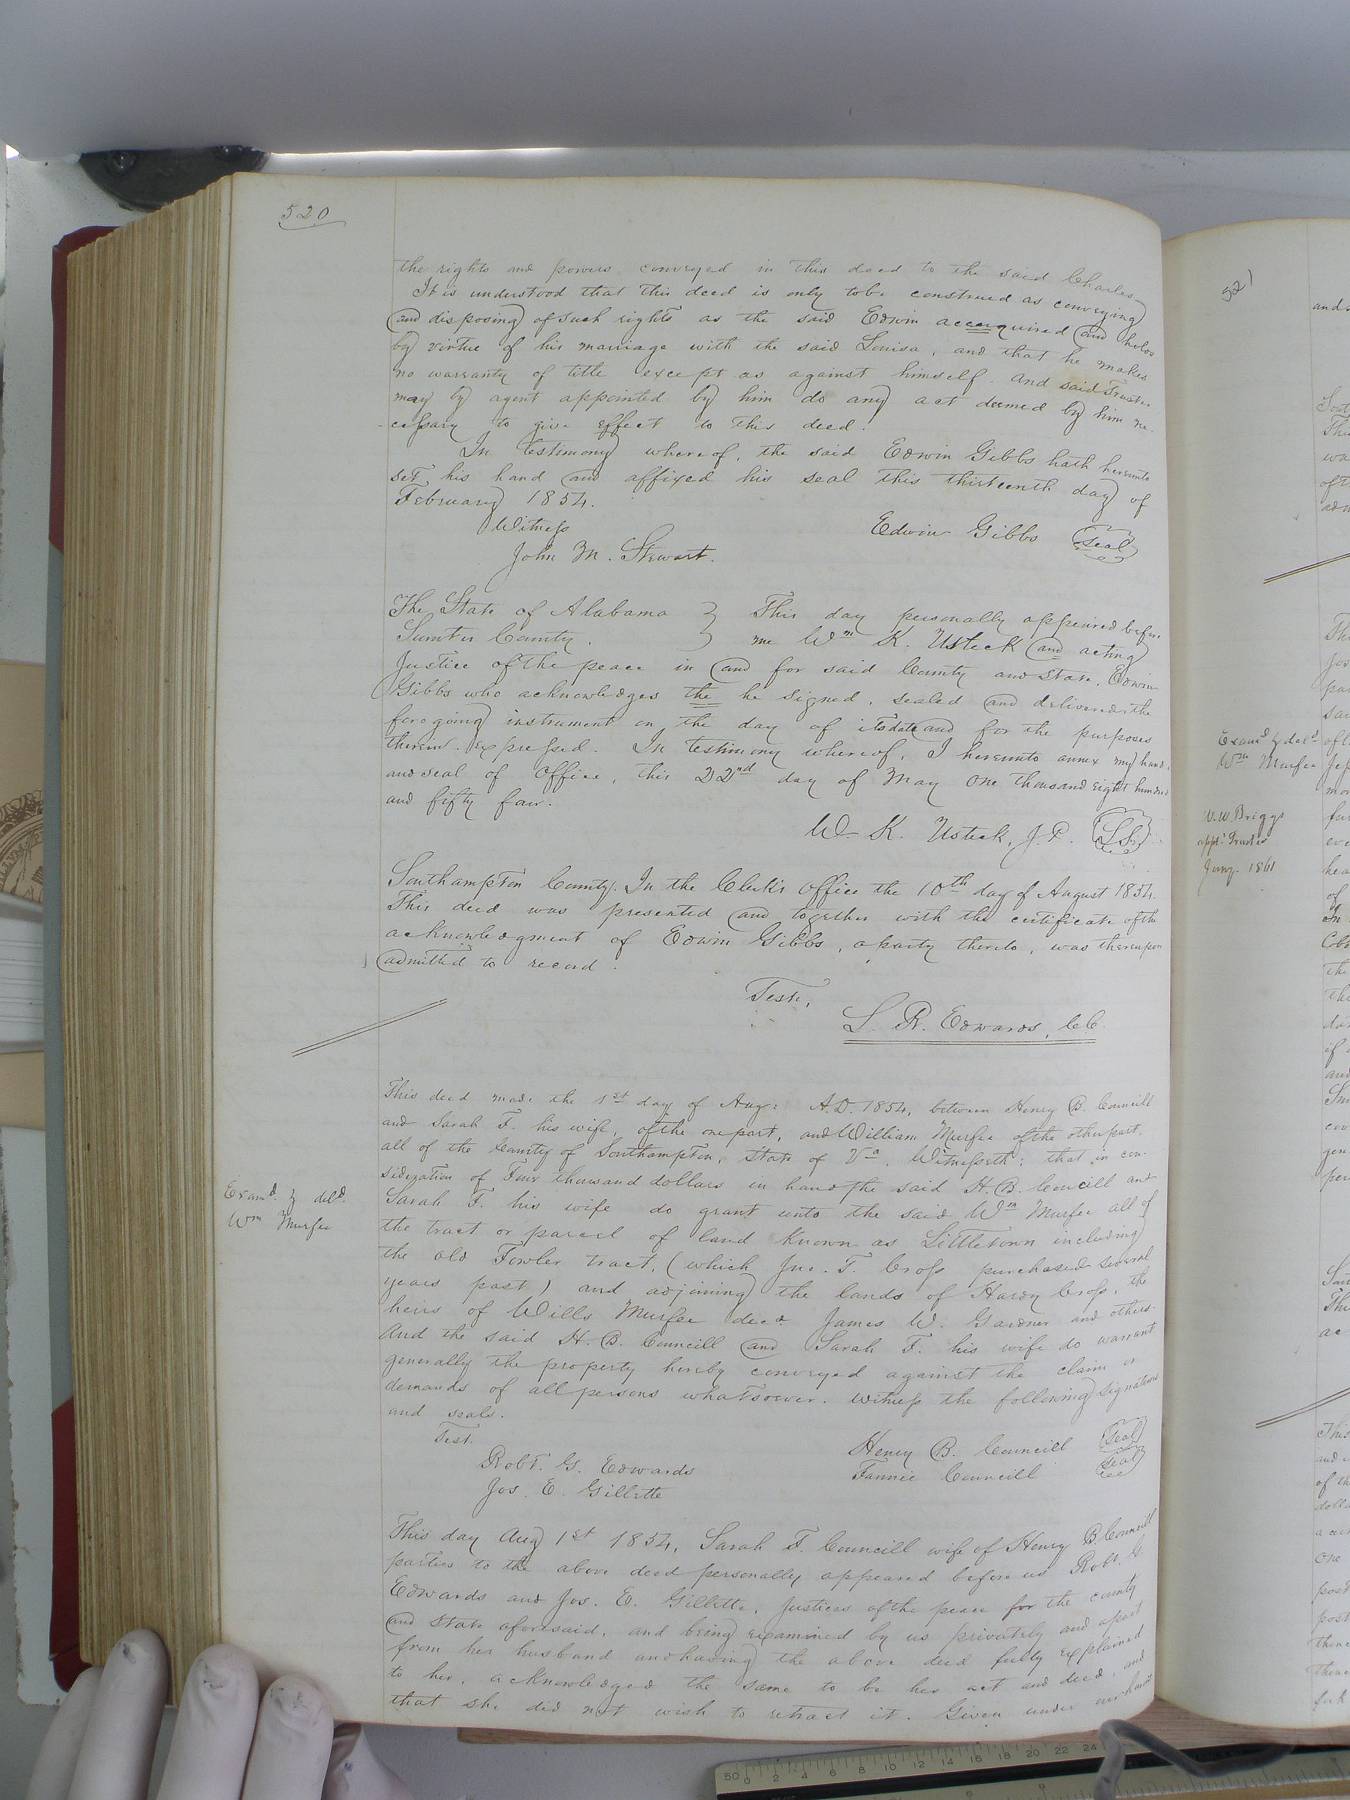 520
the rights and powers conveyed in this deed to the said Charles
It is understood that this deed is only to be construed as conveying
and disposing of such rights as the said Edwin accquired and holds
by virtue of his marriage with the said Louisa, and that he makes
no warranty of title except as against himself. And said Trustee
may by agent appointed by him do any act deemed by him ne-
-cessary to give effect to this deed.
In testimony whereof, the said Edwin Gibbs hath hereunto
set his hand and affixed his seal this thirteenth day of
February 1854.
Witness
Edwin Gibbs Seal
John M. Stewart.
The State of Alabama } This day personally appeared before
Sumter County. } me Wm K. Ustick and acting
Justice of the peace in and for said County and State, Edwin
Gibbs who acknowledges the he signed, sealed and delivered the
foregoing instrument on the day of its date and for the purposes
therein expressed. In testimony whereof, I hereunto annex my hand,
and seal of office, this 22nd day of May one thousand eight hundred
and fifty four.
W. K. Ustick, J.P. L.S.
Southampton County. In the Clerk's Office the 10th day of August 1854.
This deed was presented and together with the certificate of the
acknowledgment of Edwin Gibbs, a party thereto, was thereupon
admitted to record.
Teste,
L. R. Edwards, CC
Examd. & deld.
Wm Murfee
This deed made the 1st day of Aug: A.D. 1854, between Henry B. Councill
and Sarah F. his wife, of the one part, and William Murfee of the other part,
all of the County of Southampton, State of Va. Witnesseth; that in con-
sideration of Four thousand dollars in hand the said H. B. Councill and
Sarah F. his wife do grant unto the said Wm Murfee all of
the tract or parcel of land known as Littletown including
the old Fowler tract, (which Jno. T. Cross purchased several
years past) and adjoining the lands of Hardy Cross, the
heirs of Wills Murfee decd James W. Gardner and others.
And the said H. B. Councill and Sarah F. his wife do warrant
generally the property hereby conveyed against the claim or
demands of all persons whatsoever. Witness the following signatures
and seals.
Test.
Henry B. Councill Seal
Robt. G. Edwards
Fannie Councill Seal
Jos. E. Gillette
This day Aug 1st 1854, Sarah F. Councill wife of Henry B. Councill
parties to the above deed personally appeared before us Robt. G.
Edwards and Jos. E. Gillette, Justices of the peace for the county
and State aforesaid, and being examined by us privately and apart
from her husband and having the above deed fully explained
to her, acknowledged the same to be her act and deed, and
that she did not wish to retract it. Given under our hands
521
Examd & deld
Wm Murfee
W. W. Briggs
appt. Trustee
Jany. 1861